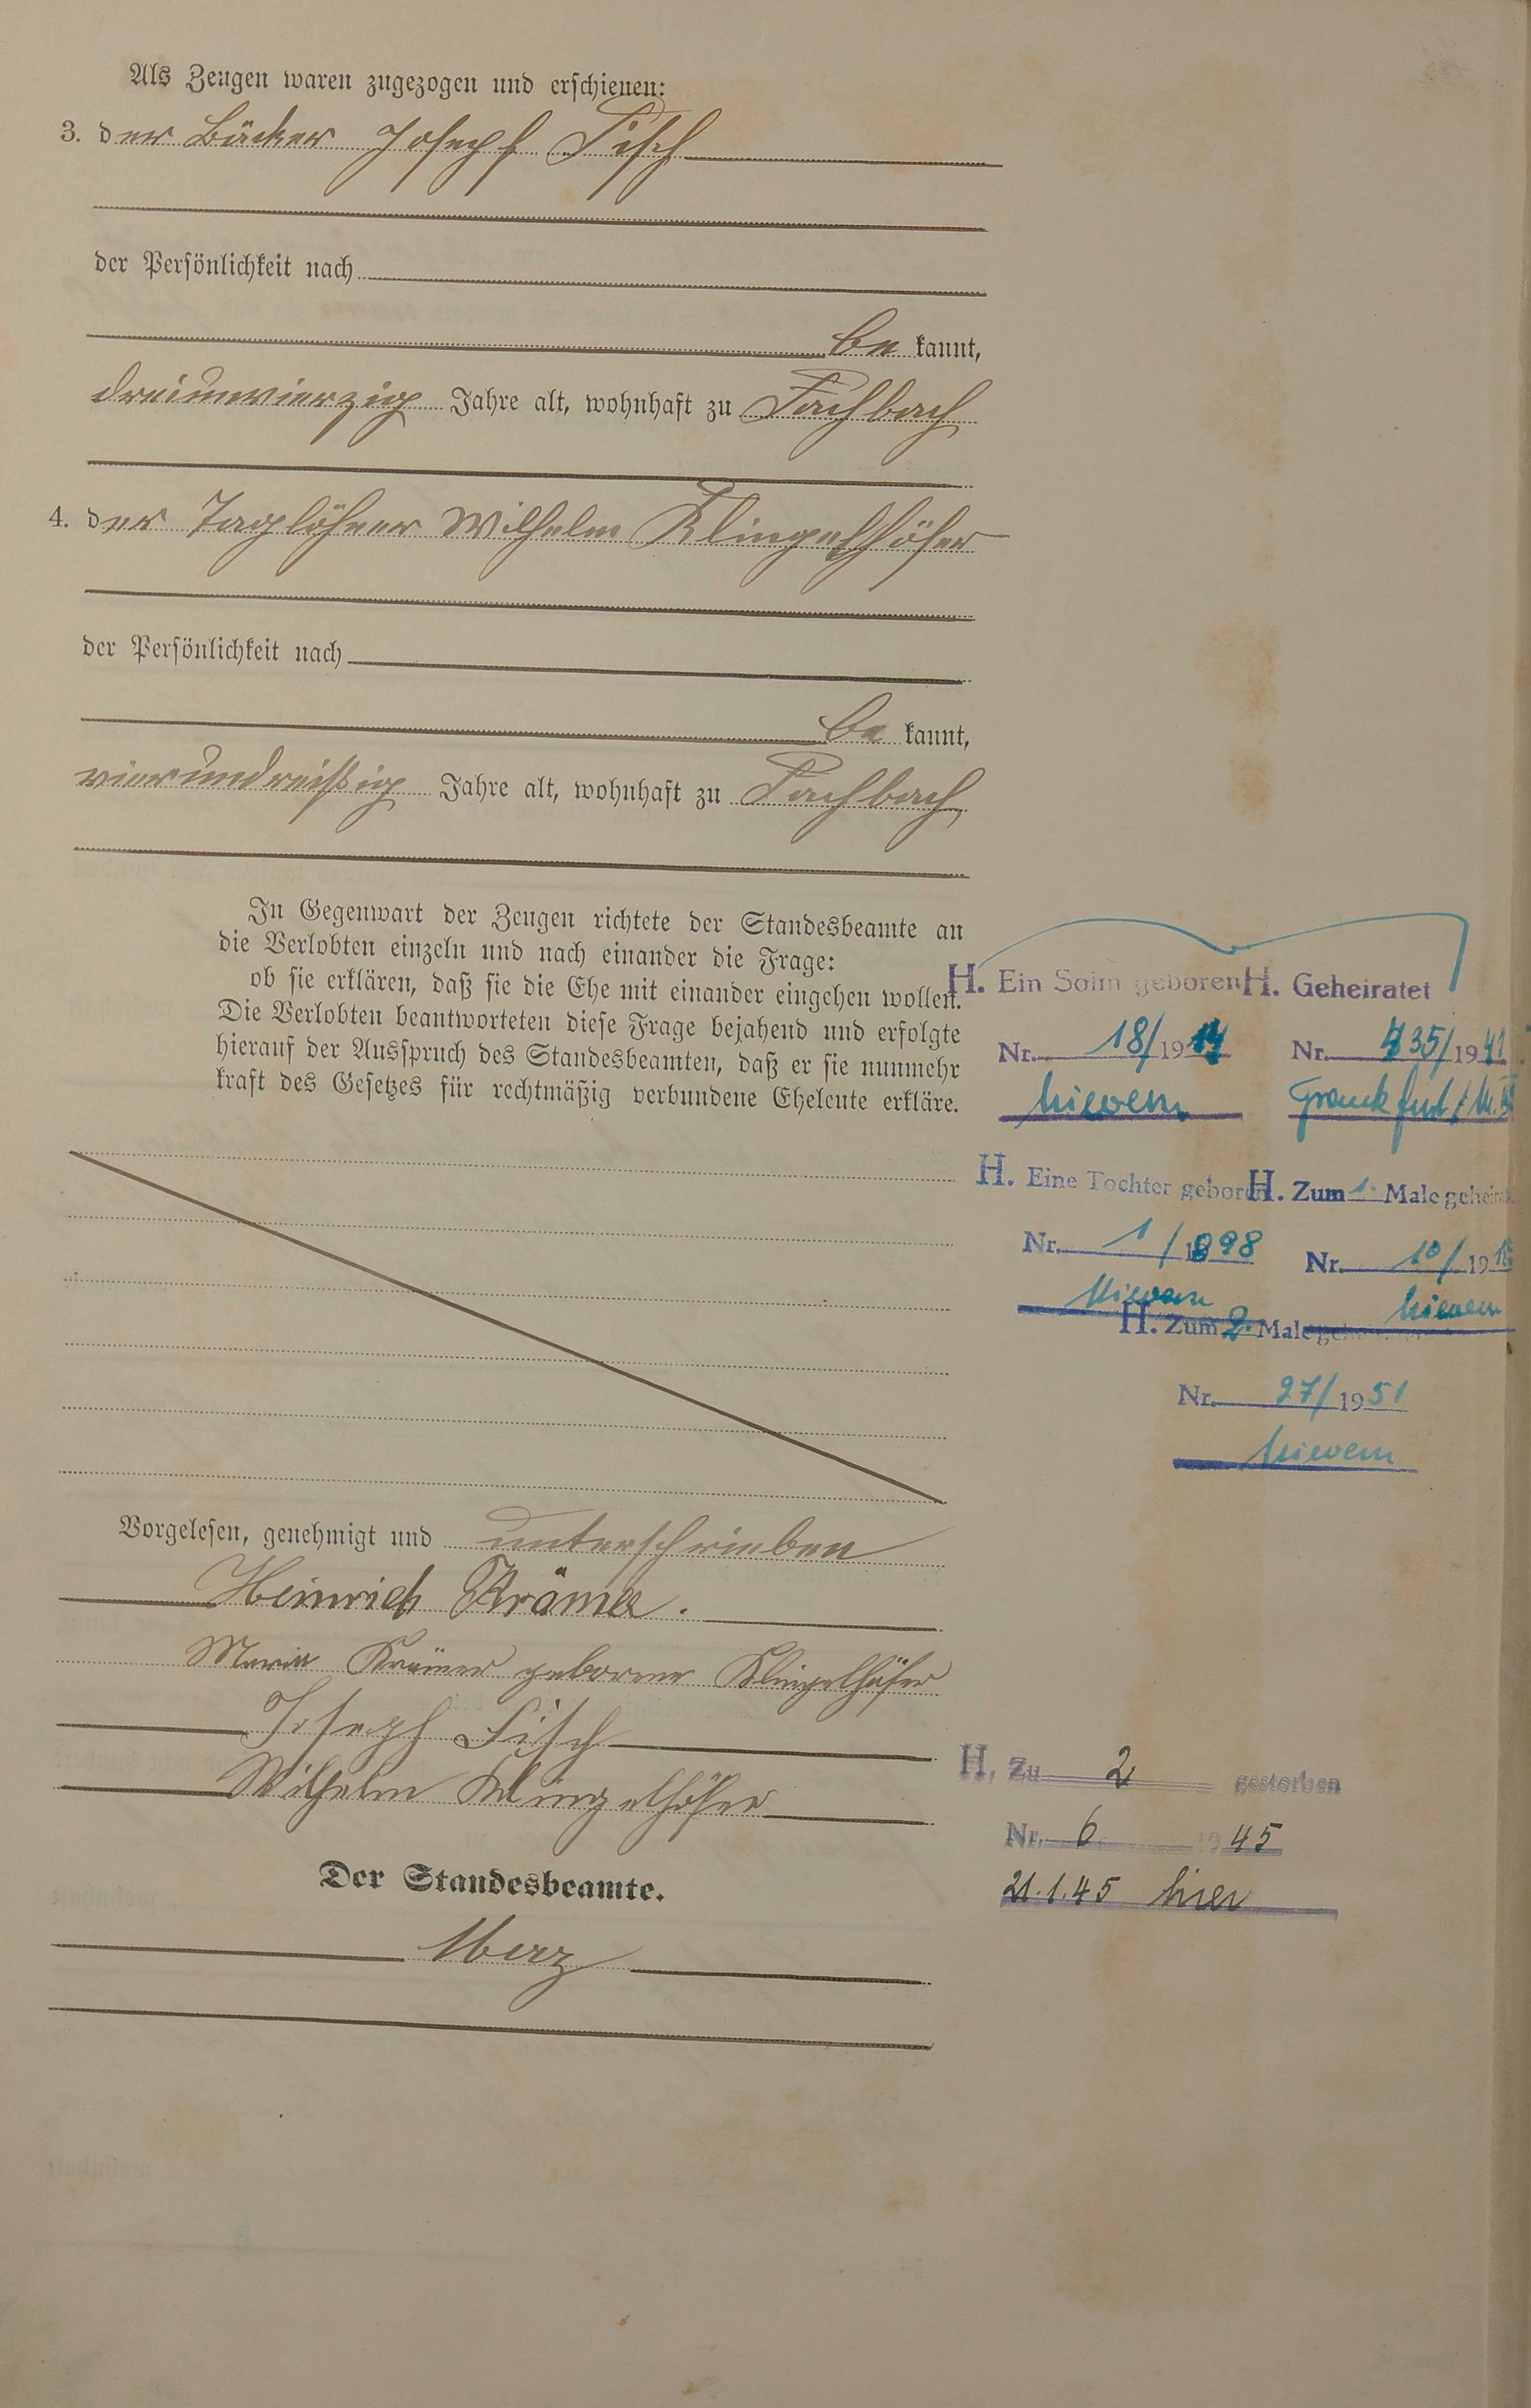 Als Zeugen waren zugezogen und erschienen:
3. der Bäcker Joseph Fisch
der Persönlichkeit nach
be kannt,
dreiunvierzig Jahre alt, wohnhaft zu Fachbach
4. der Taglöhner Wilhelm Klingelhöfer
der Persönlichkeit nach
be kannt,
vierundreißig Jahre alt, wohnhaft zu Fachbach
In Gegenwart der Zeugen richtete der Standesbeamte an
die Verlobten einzeln und nach einander die Frage:
ob sie erklären, daß sie die Ehe mit einander eingehen wollen.
Die Verlobten beantworteten diese Frage bejahend und erfolgte
hierauf der Ausspruch des Standesbeamten, daß er sie nunmehr
kraft des Gesetzes für rechtmäßig verbundene Eheleute erkläre.
Vorgelesen, genehmigt und unterschrieben
Heinrich Krämer.
Maria Krämer geborene Klingelhöfer
Joseph Fisch
Wilhelm Klingelhöfer
Der Standesbeamte.
Merz
H. Ein Sohn geboren
Nr. 18/1914
Nievern
H. Geheiratet
Nr. 435/1941
Frankfurt/M.
H. Eine Tochter geboren
Nr. 1/1898
Nievern
H. Zum 1. Male geheira
Nr. 10/19
Nievern
H. Zum 2. Male
Nr. 27/1951
Nievern
H. Zu 2 gestorben
Nr. 6 1945
21.1.45 hier